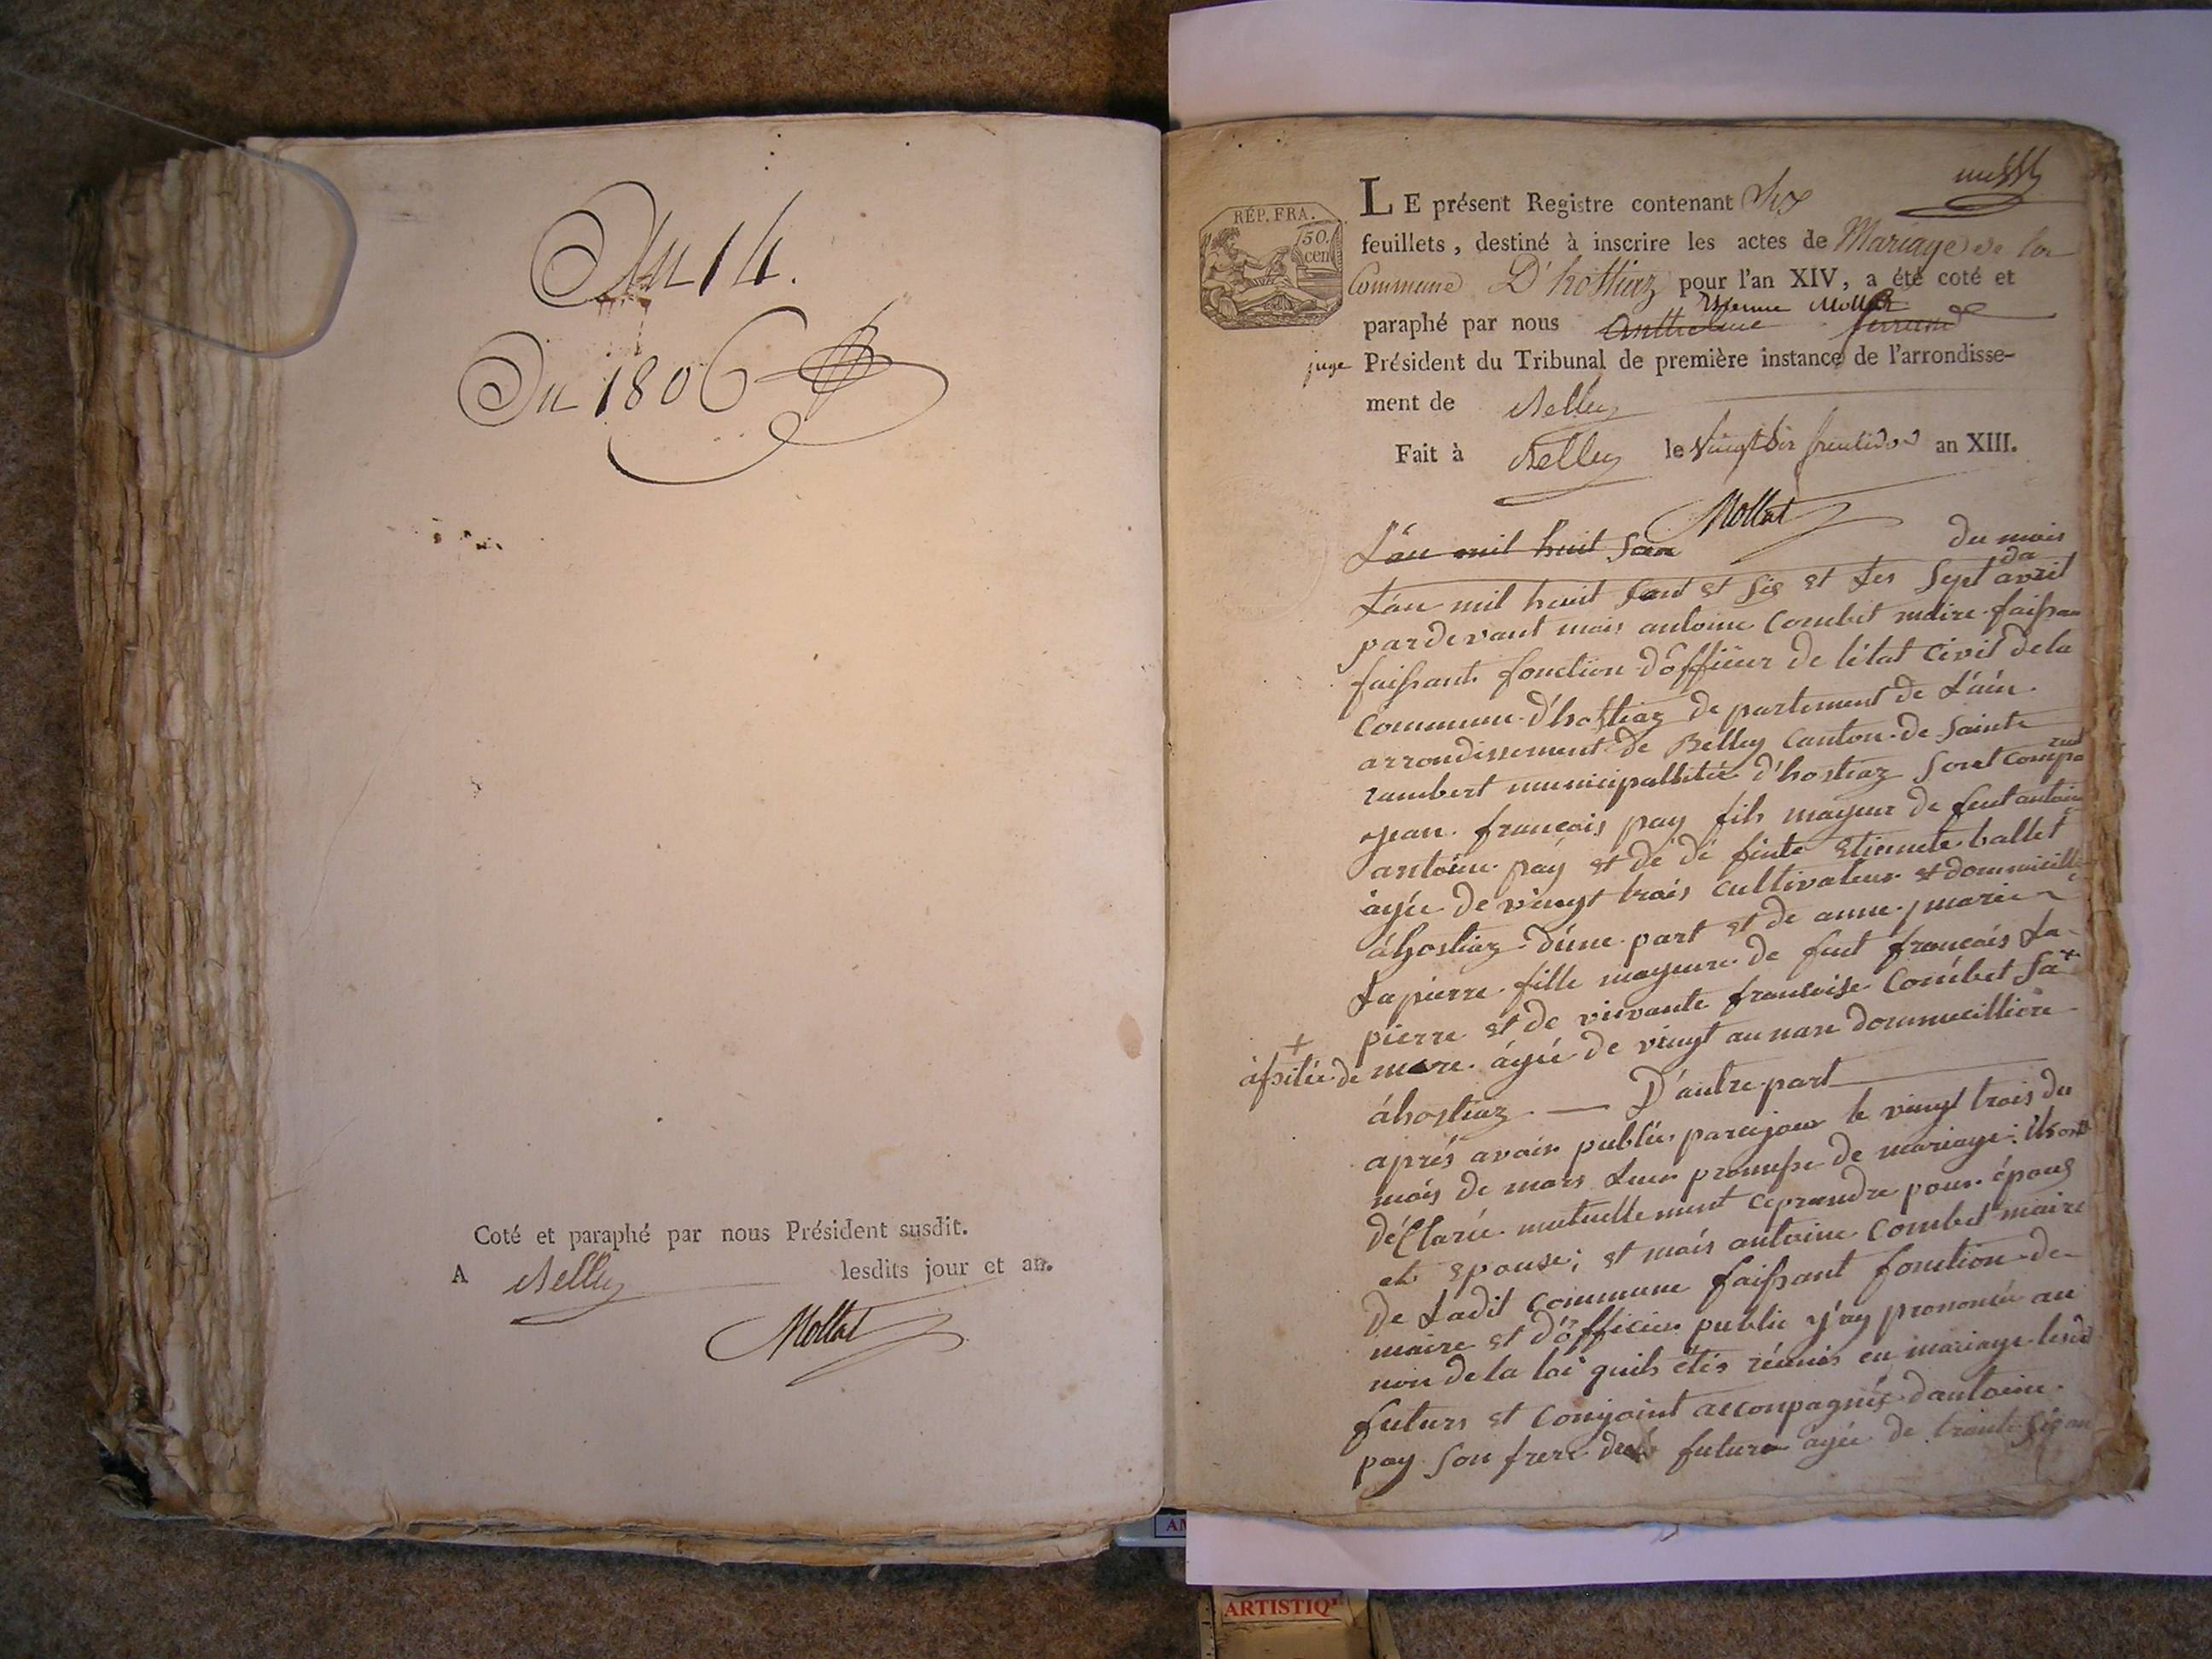 An 14.
Du 1806
Coté et paraphé par nous Président susdit.
A Belley lesdits jour et an.
Mollat
RÉP. FRA.
50.
cen
LE présent Registre contenant Six
feuillets, destiné à inscrire les actes de Mariage de la
Commune D'hostiaz pour l'an XIV, a été coté et
Etienne Mollat
paraphé par nous Anthelme ferrand
juge Président du Tribunal de première instance de l'arrondisse-
ment de Belley
Fait à Belley le Vingt Six fructidor an XIII.
Mollat
L'an mil huit San du mois
da
L'an mil huit Sant et Sis et Les Sept avril
pardevant mois antoine Combet maire faissan
faissant fonction d'offiier de l'état civil de la
Commune d'hostiaz de partement de L'ain
arrondissement de Belley Canton de Sainte
rambert municipallitée d'hostiaz Sont compa
rut
jean francois pay fils mayeur de feut antoin
antoine pay et de dé finte etiennete ballet
àgée de vingt trois cultivateur et dommicillie
à hostiaz d'une part et de anne marie
Lapierre fille mayeure de feut francois La
pierre et de vivante francoise Combet Sa
+
assitée de mere àgée de vingt au nan dommicilliere
à hostiaz — D'autre part
aprés avoir publier parcijour le vingt trois du
mois de mars Leur promesse de mariage: ils ont
déClarée mutuellement ceprandre pour époug
et epouse; et mois antoine Combet maire
De Ladit Commune faissant fonction de
maire et d'officier public y'ay prononcée au
non de la loi quils étés réunis en mariage lesd
futurs et Conjoint acconpagnés dantoine
pay Son frere du futur agée de trante Sis an
ARTISTIQ